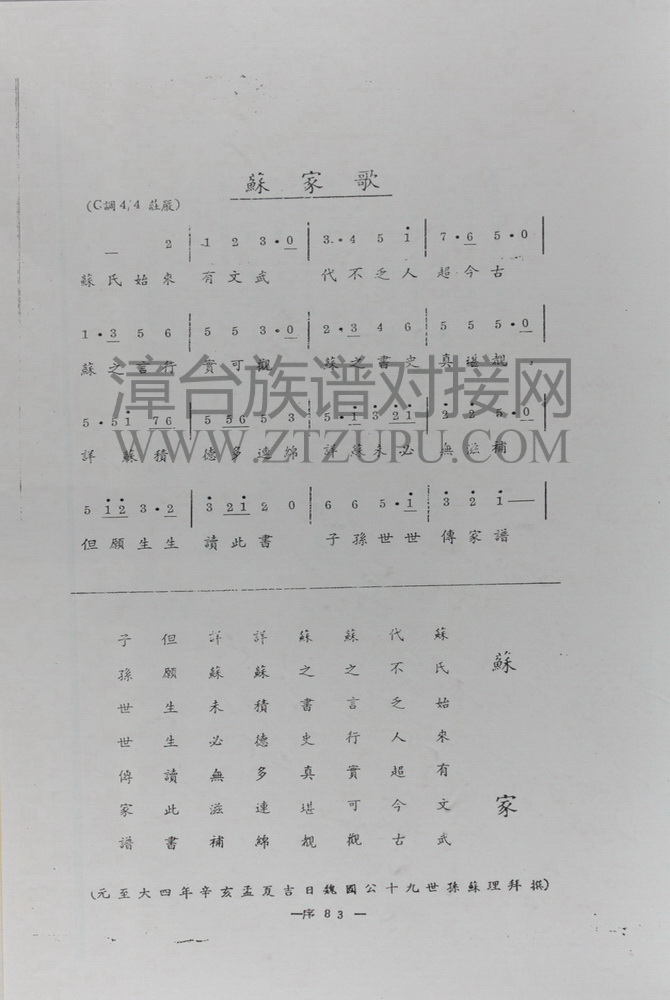 蘇家歌
(C調4/4 莊嚴)
2 1 2 3·0 3·4 5 i 7·6 5·0
蘇氏始來有文武 代不乏人超今古
1·3 5 6 5 5 3·0 2·3 4 6 5 5 5·0
蘇之言行實可觀 蘇之書史真堪覩,
漳台族谱对接网
5·5 i 7 6 5 5 6 5 3 5·i 3 2 i 2 2 5·0
WWW.ZTZUPU.COM
詳蘇積德多連綿 詳蘇未必無滋補
5 i 2 3·2 3 2 i 2 0 6 6 5·i 3 2 i—
但願生生讀此書 子孫世世傳家譜
蘇家
蘇氏始來有文武
代不乏人超今古
蘇之言行實可觀
蘇之書史真堪覩
詳蘇積德多連綿
詳蘇未必無滋補
但願生生讀此書
子孫世世傳家譜
(元至大四年辛亥孟夏吉日魏國公十九世孫蘇理拜撰)
—序83—